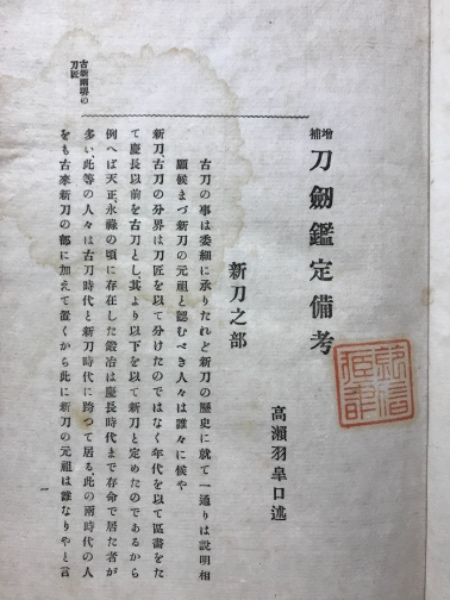 増補 刀劒鑑定備考
高瀬羽皐口述
新刀之部
古刀の事は委細に承りたれど新刀の歴史に就て一通りは說明相
願候まづ新刀の元祖と認むべき人々は誰々に候や
新刀、古刀の分界は刀匠を以て分けたのではなく年代を以て區畵をた
て慶長以前を古刀とし、其より以下を以て新刀と定めたのであるから
例へば天正、永祿の頃に存在した鍛冶は慶長時代まで存命で居た者が
多い、此等の人々は古刀時代と新刀時代に跨つて居る、此の兩時代の人
をも古來新刀の部に加えて置くから此に新刀の元祖は誰なりやと言
古新兩界の
刀匠
一